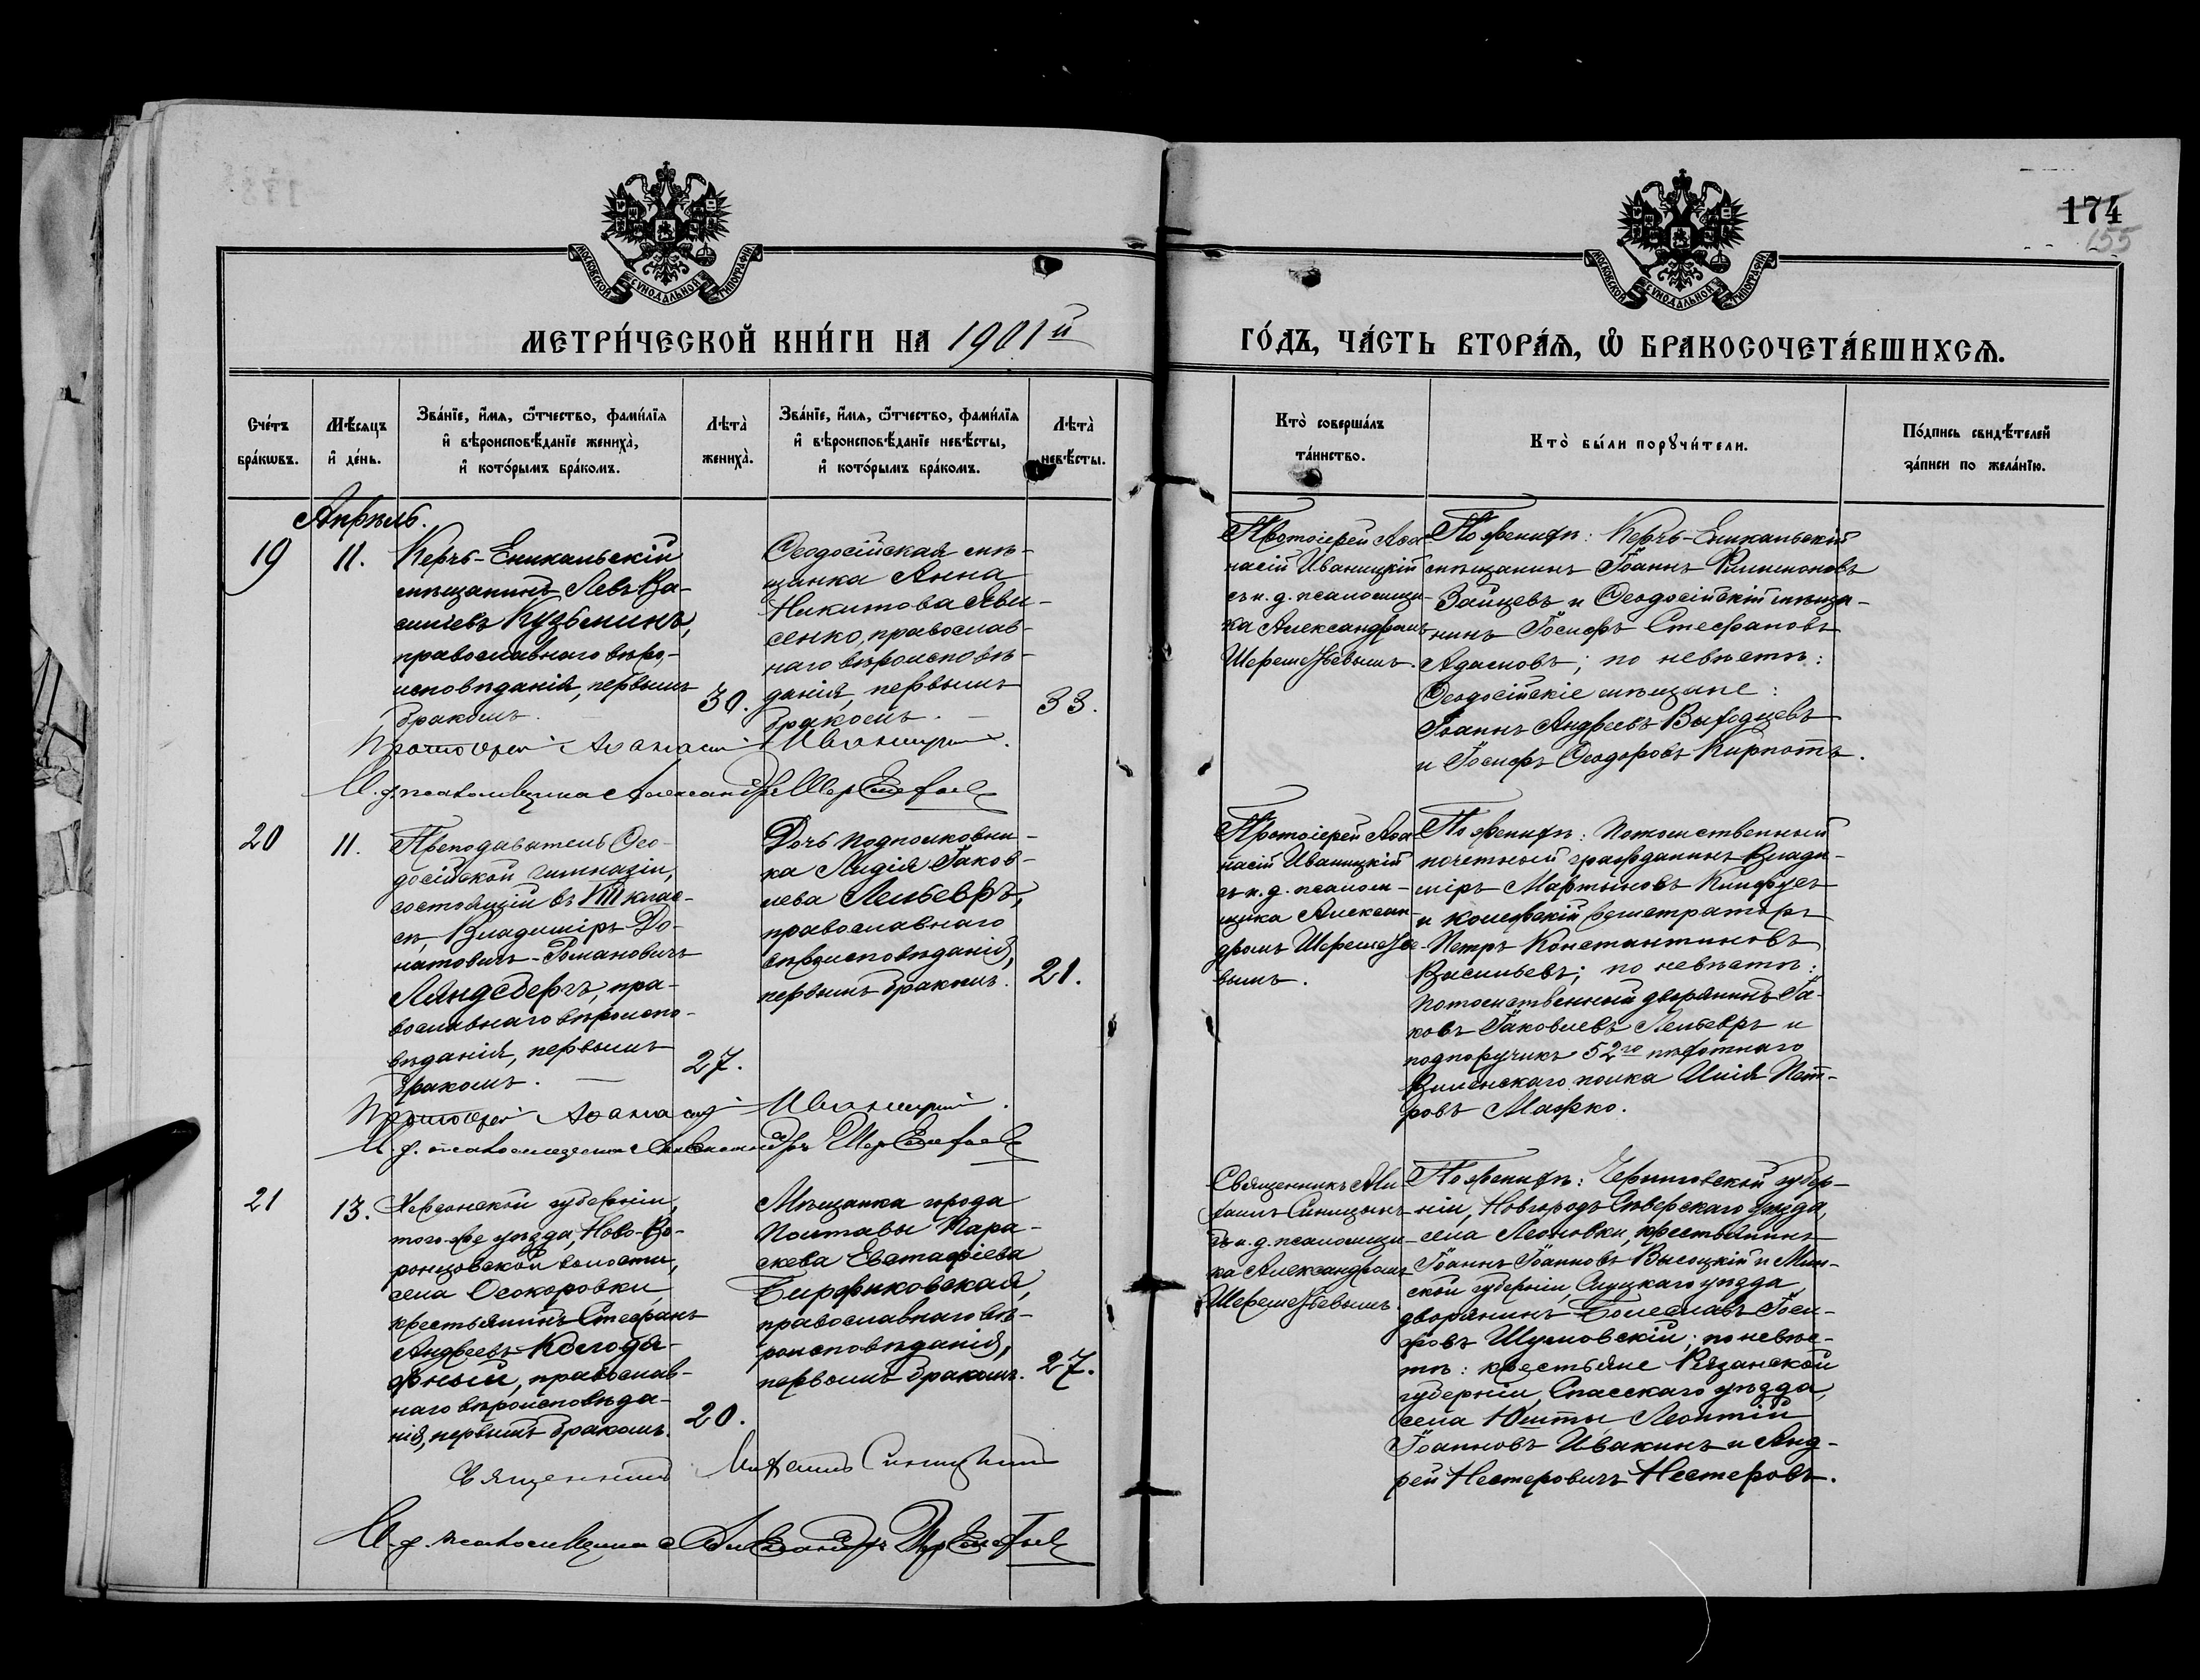 174
155
МОСКОВСКОЙ СУНОДАЛЬНОЙ ТИПОГРАФІИ
МОСКОВСКОЙ СУНОДАЛЬНОЙ ТИПОГРАФІИ
МЕТРИ́ЧЕСКОЙ КНИ́ГИ НА 1901й
ГО́ДЪ, ЧА́СТЬ ВТОРА́Я, Ѽ БРАКОСОЧЕТА́ВШИХСѦ.
Сче́тъ
бра́кѡвъ.
Мѣ́сяцъ
и҆ де́нь.
Зва́нїе, и҆́мя, ѻ҆́тчество, фами́лїя
и҆ вѣроисповѣ́данїе жениха̀,
и҆ кото́рымъ бра́комъ.
Лѣта̀
жениха̀.
Зва́нїе, и҆́мя, ѻ҆́тчество, фами́лїя
и҆ вѣроисповѣ́данїе невѣ́сты,
и҆ кото́рымъ бра́комъ.
Лѣта̀
невѣ́сты.
Кто̀ соверша́лъ
та́инство.
Кто̀ бы́ли порꙋчи́тели.
По́дпись свидѣ́телей
за́писи по жела́нїю.
Апрѣль.
19
11.
Керчь-Еникальскій
мѣщанинъ Левъ Ва-
сильевъ Кузьминъ,
православнаго вѣро-
исповѣданія, первымъ
бракомъ.
30.
Ѳеодосійская мѣ-
щанка Анна
Никитова Яви-
сенко, православ-
наго вѣроисповѣ-
данія, первымъ
бракомъ.
33.
Протоіерей Аѳа-
насій Иваницкій
съ и. д. псаломщи-
ка Александромъ
Шереметьевымъ.
По женихѣ: Керчь-Еникальскій
мѣщанинъ Іоаннъ Филимоновъ
Зайцевъ и Ѳеодосійскій мѣща-
нинъ Іосифъ Стефановъ
Адамовъ; по невѣстѣ:
Ѳеодосійскіе мѣщане:
Іоаннъ Андреевъ Выходцевъ
и Іосифъ Ѳеодоровъ Кирпотъ.
Протоіерей Аѳанасій Иваницкій.
И. д. псаломщика Александръ Шереметьевъ
20
11.
Преподаватель Ѳео-
досійской гимназіи,
состоящій въ VIII клас-
сѣ, Владиміръ До-
натовичъ-Романовичъ
Ляндсбергъ, пра-
вославнаго вѣроиспо-
вѣданія, первымъ
бракомъ.
27.
Дочь подполковни-
ка Лидія Іаков-
лева Лельевръ,
православнаго
вѣроисповѣданія,
первымъ бракомъ.
21.
Протоіерей Аѳа-
насій Иваницкій
съ и. д. псалом-
щика Алексан-
дромъ Шереметье-
вымъ.
По женихѣ: потомственный
почетный гражданинъ Влади-
міръ Мартыновъ
и коллежскій регистраторъ
Петръ Константиновъ
Васильевъ; по невѣстѣ:
потомственный дворянинъ Іа-
ковъ Іаковлевъ Лельевръ и
подпоручикъ 52го пѣхотнаго
Виленскаго полка Илія Пет-
ровъ Мажко.
Протоіерей Аѳанасій Иваницкій.
И. д. псаломщика Александръ Шереметьевъ
21
13.
Херсонской губерніи,
того-же уѣзда, Ново-Во-
ронцовской волости,
села Осокоровки
крестьянинъ Стефанъ
Андреевъ Колодя-
жный, православ-
наго вѣроисповѣда-
нія, первымъ бракомъ.
20.
Мѣщанка города
Полтавы Пара-
скева Евстафіева
Биржиковская,
православнаго вѣ-
роисповѣданія,
первымъ бракомъ.
27.
Священникъ Ми-
хаилъ Синицынъ
съ и. д. псаломщи-
ка Александромъ
Шереметьевымъ.
По женихѣ: Черниговской губер-
ніи, Новгородъ-Сѣверскаго уѣзда,
села Леоновки, крестьянинъ
Іоаннъ Іоанновъ Высоцкій и Мин-
ской губерніи, Слуцкаго уѣзда
дворянинъ Болеславъ Іоси-
фовъ Шумовскій; по невѣс-
тѣ: крестьяне Рязанской
губерніи, Спасскаго уѣзда,
села Ижты Леонтій
Іоанновъ Ивакинъ и Анд-
рей Нестеровичъ Нестеровъ.
Священникъ Михаилъ Синицынъ
И. д. псаломщика Александръ Шереметьевъ